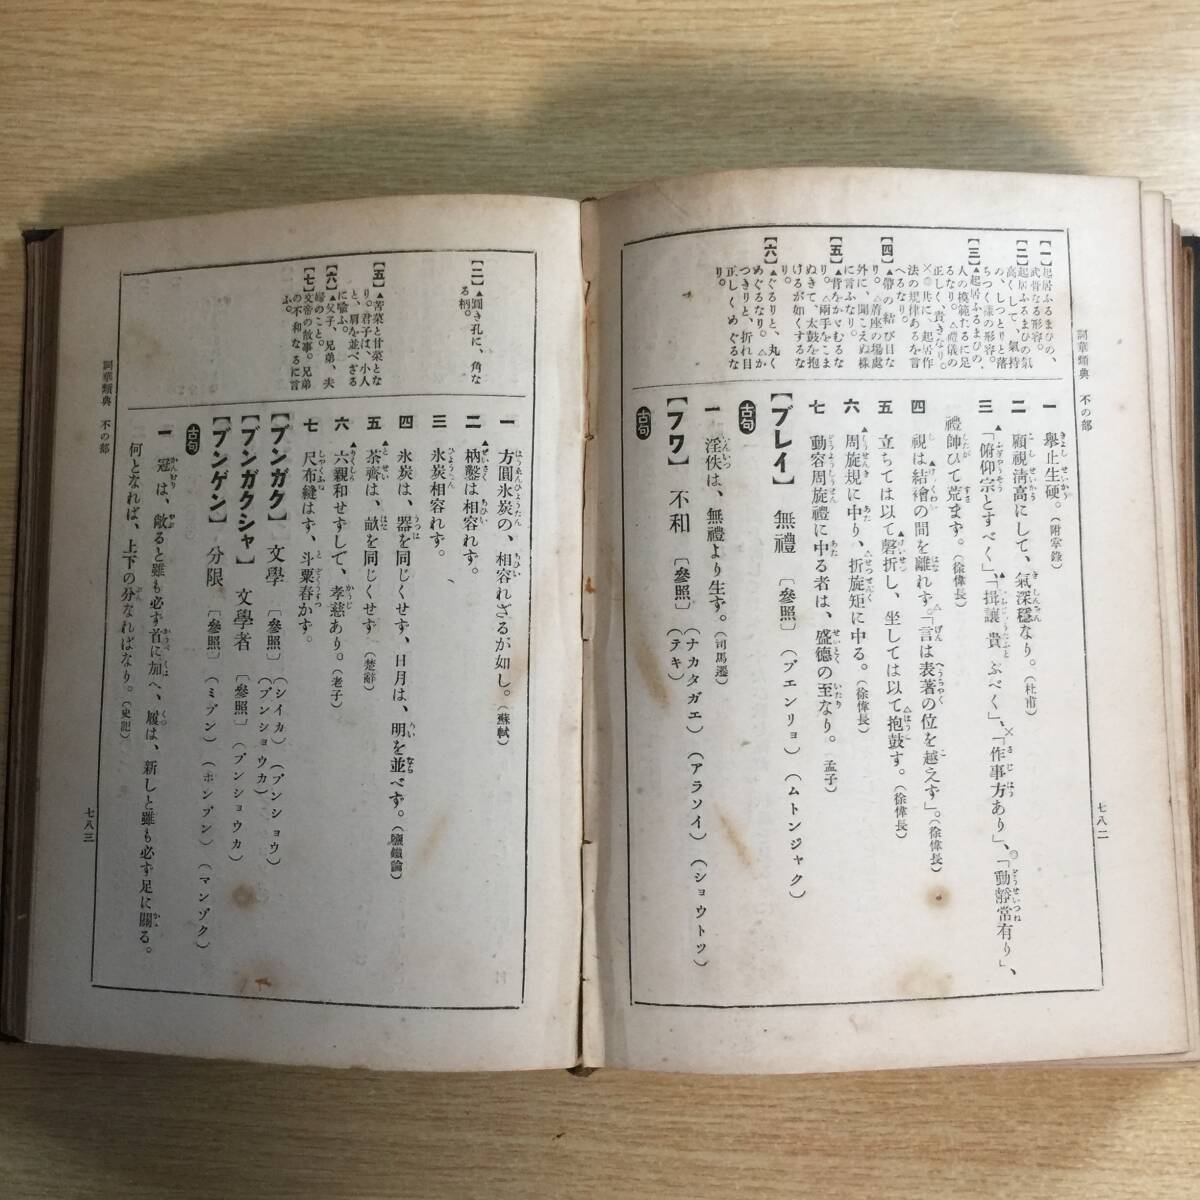 詞華類典 不の部
七八二
【一】起居ふるまひの、
武骨なる形容。
【二】起居ふるまひの氣
高くして、氣持
の、しつとりと落
ちつく樣の形容。
【三】▲起居ふるまひの、
人の模範たるに足
るなり。△禮儀の
正しく貴きなり。
×◎共に、起居作
法の規律あるを言
へるなり。
【四】▲帶の結び目な
り。△着座の場處
外に、聞こえぬ樣
に言ふなり。
【五】▲背をかゞむるな
り。△兩手をこま
ぬきて、太鼓を抱
けるが如くするな
り。
【六】▲ぐるりと、丸く
めぐるなり。△か
つきりと、折れ目
正しくめぐるな
り。
一 擧止生硬。(附掌錄)
二 顧視淸高にして、氣深穩なり。(杜甫)
三 「俯仰宗とすべく」、「揖讓貴ぶべく」、「作事方あり」、「動靜常有り」、
禮師ひて荒ます。(徐偉長)
四 視は結襘の間を離れず。「言は表著の位を越えず」。(徐偉長)
五 立ちては以て磬折し、坐しては以て抱鼓す。(徐偉長)
六 周旋規に中り、折旋矩に中る。(徐偉長)
七 動容周旋禮に中る者は、盛德の至なり。 孟子)
【ブレイ】 無禮 〔參照〕(ブエンリョ)(ムトンジャク)
古句
一 淫佚は、無禮より生ず。(司馬遷)
【フワ】 不和 〔參照〕(ナカタガエ)(アラソイ)(ショウトツ)
(テキ)
古句
【二】▲圓き孔に、角な
る柄。
【五】▲苦菜と甘菜とな
り。君子は、小人
と、肩を並べざる
に喩ふ。
【六】▲父子、兄弟、夫
婦のこと。
【七】文帝の故事。兄弟
の不和なるに言
ふ。
一 方圓氷炭の、相容れざるが如し。(蘇軾)
二 枘鑿は相容れず。
三 氷炭相容れず。
四 氷炭は、器を同じくせず、日月は、明を並べず。(鹽鐵論)
五 荼薺は、畝を同じくせず (楚辭)
六 六親和せずして、孝慈あり。(老子)
七 尺布縫はず、斗粟舂かず。
【ブンガク】 文學 〔參照〕(シイカ)(ブンショウ)
【ブンガクシャ】 文學者 〔參照〕(ブンショウカ)
【ブンゲン】 分限 〔參照〕(ミブン)(ホンブン)(マンゾク)
古句
一 冠は、敝ると雖も必ず首に加へ、履は、新しと雖も必ず足に關る。
何となれば、上下の分なればなり。(史記)
詞華類典 不の部
七八三